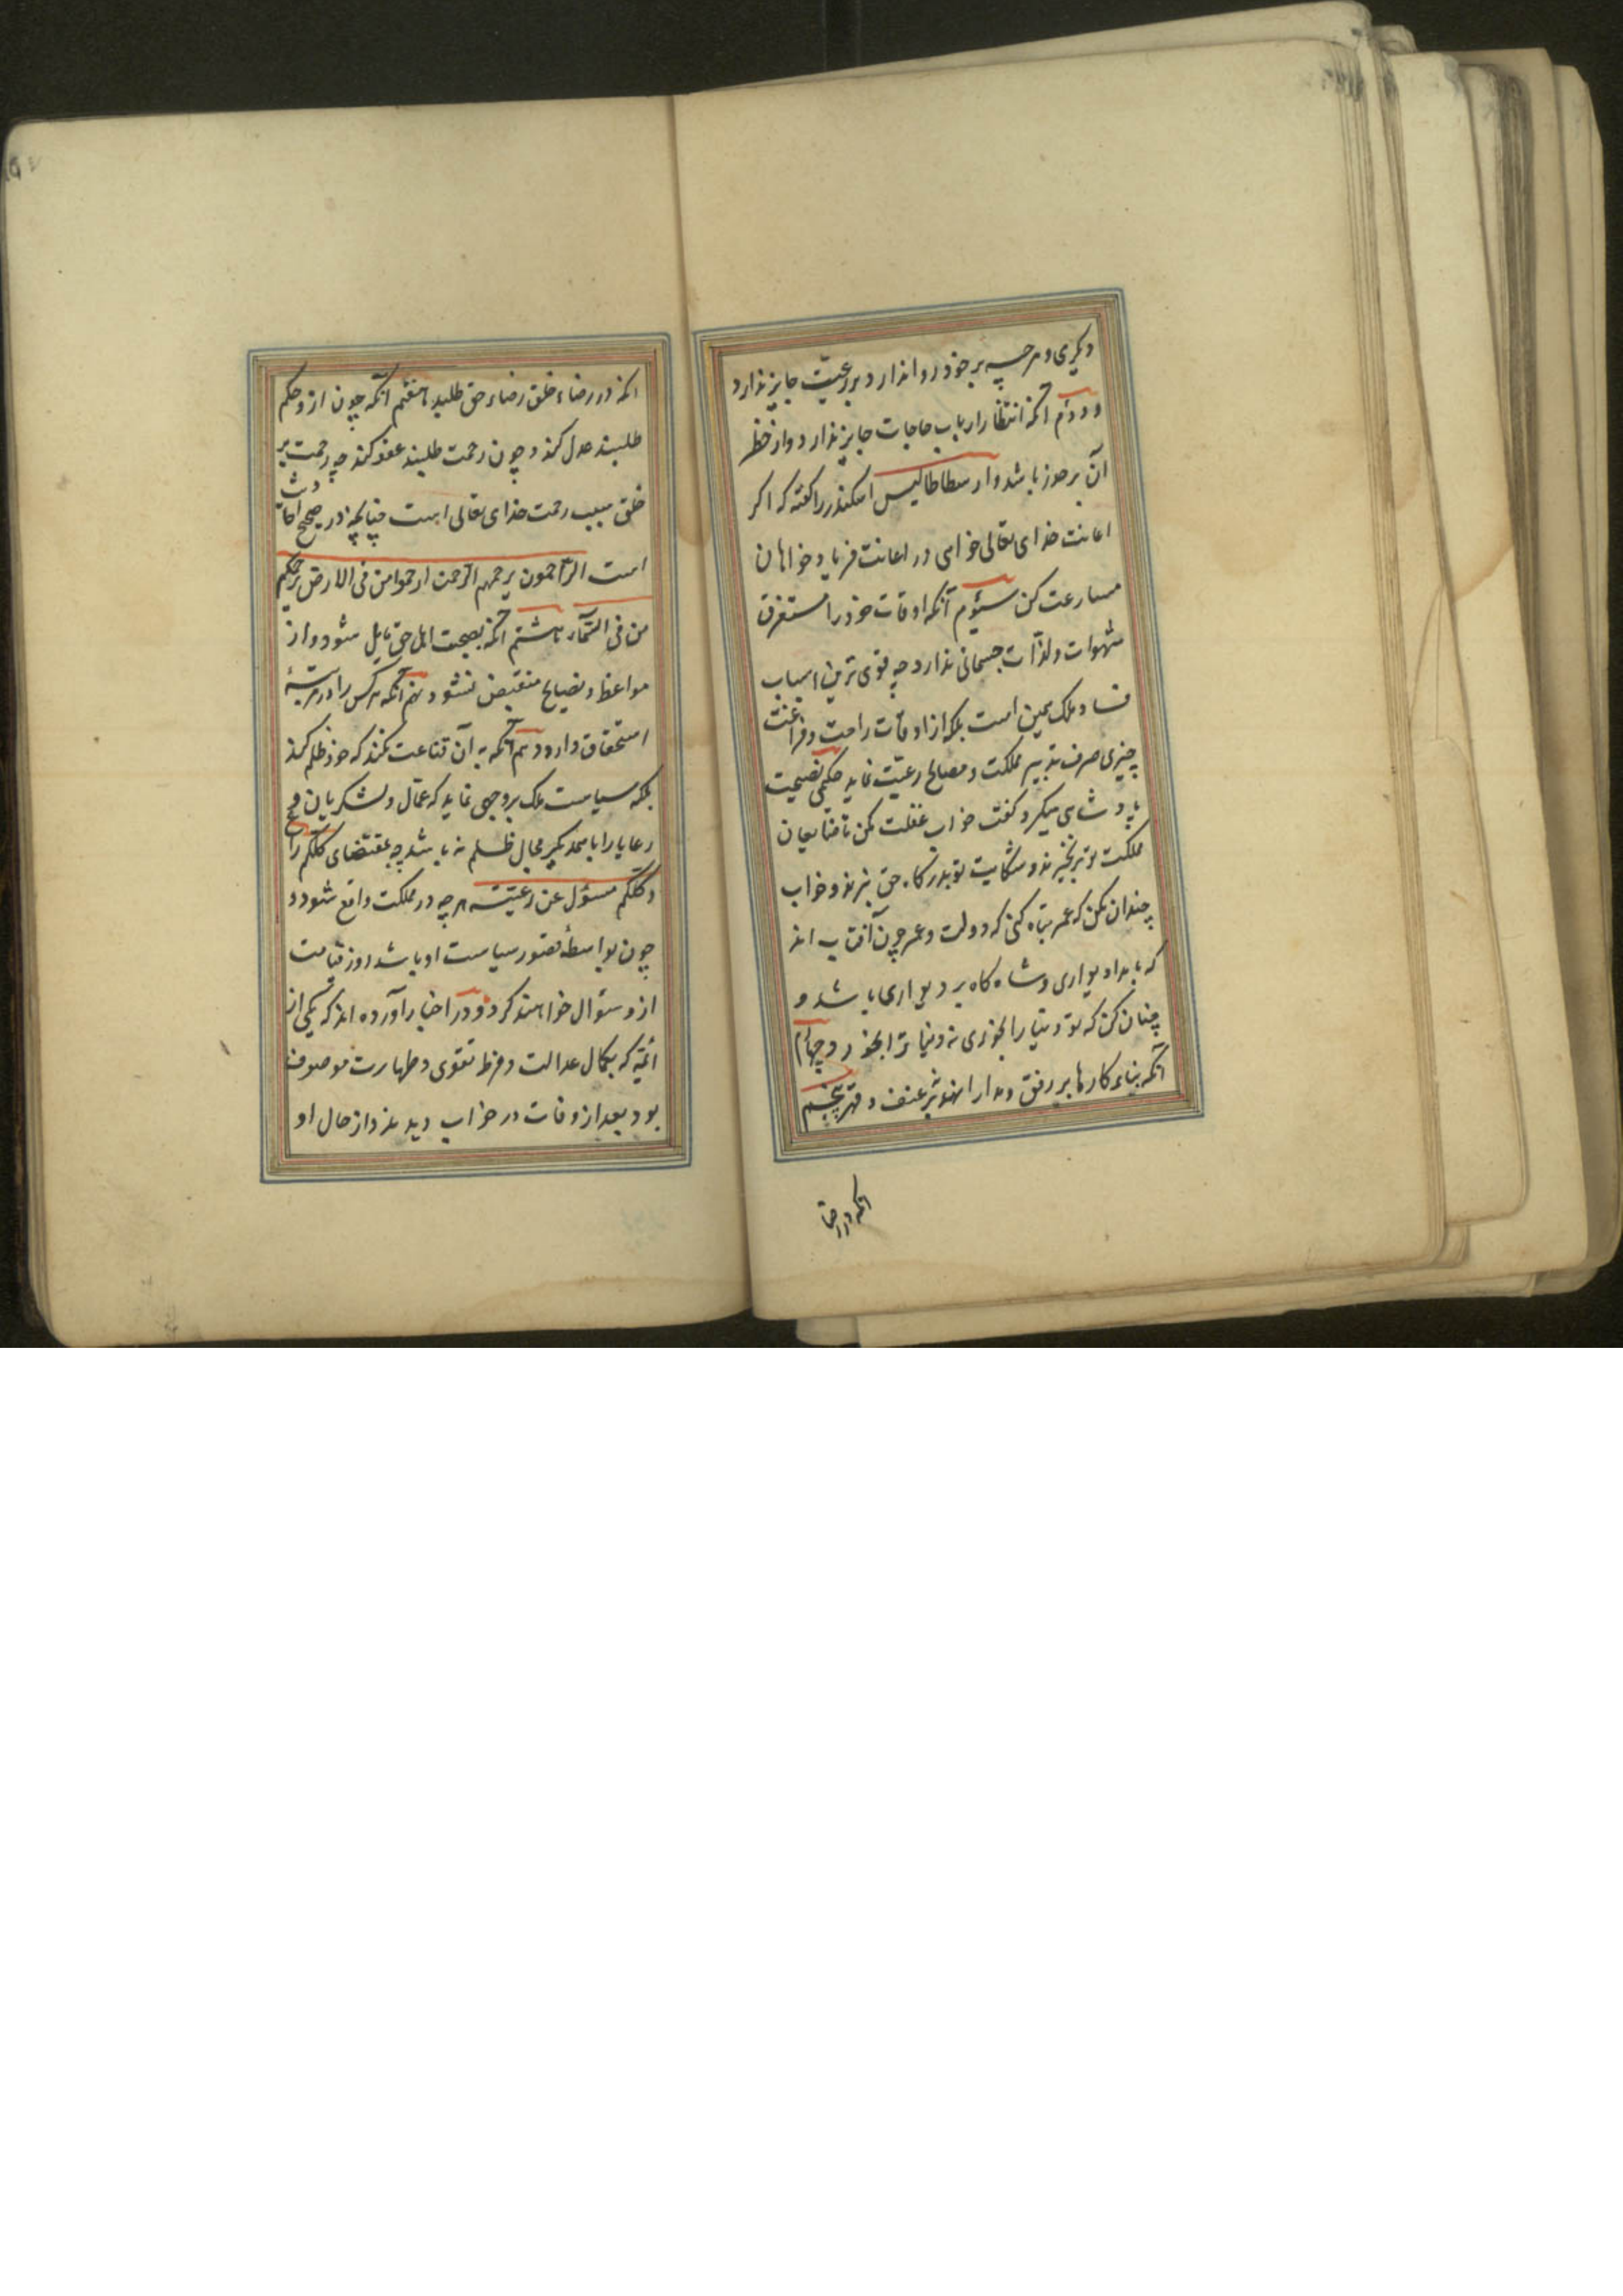 دیگری و هرچه بر خود روا ندارد بر رعیّت جایز ندارد
و دوم آنکه انتظار ارباب حاجات جایز ندارد و از خطر
آن بر حذر باشد و ارسطاطالیس اسکندر را گفته که اگر
اعانت خدای تعالی خواهی در اعانت فریاد خواهان
مسارعت کن سیوم آنکه اوقات خود را مستغرق
شهوات و لذّات جسمانی ندارد چه قوی ترین اسباب
فساد ملک همین است بلکه از اوقات راحت و فراغت
چیزی صرف تدبیر مملکت و مصالح رعیّت نماید حکیمی نصیحت
پادشاهی میکرد گفت خواب غفلت مکن تا متابعان
مملکت تو برنخیزند و شکایت تو بدرگاه حق نبرند و خواب
چندان مکن که عمر تباه کنی که دولت و عمر چون آفتاب اند
که بامداد بر دیواری و شبانگاه بر دیواری باشد و
چنان کن که تو دنیا را بخوری نه دنیا ترا بخورد و چهارم
آنکه بناء کارها بر رفق و مدارا نهد نه بر عنف و قهر پنجم
آنکه در رضا
آنکه در رضاء خلق رضاء حق طلبد هفتم آنکه چون ازو حکم
طلبند عدل کند و چون رحمت طلبند عفو کند چه رحمت بر
خلق سبب رحمت خدای تعالی است چنانچه در صحیح احادیث
است الرّاحمون یرحمهم الرّحمن ارحموا من فی الارض یرحمکم
من فی السّماء هشتم آنکه بصحبت اهل حق مایل شود و از
مواعظ و نصایح منقبض نشود نهم آنکه هرکس را در مرتبهٔ
استحقاق دارد دهم آنکه به آن قناعت نکند که خود ظلم نکند
بلکه سیاست ملک بر وجهی نماید که عمّال و لشکریان و
رعایا را با همدیگر مجال ظلم نباشد چه بمقتضای کلّکم راع
و کلّکم مسؤل عن رعیّته هرچه در مملکت واقع شود و
چون بواسطهٔ قصور سیاست او باشد روز قیامت
ازو سؤال خواهند کرد و در اخبار آورده اند که یکی از
ائمّه که بکمال عدالت و فرط تقوی و طهارت موصوف
بود بعد از وفات در خواب دیدند و از حال او